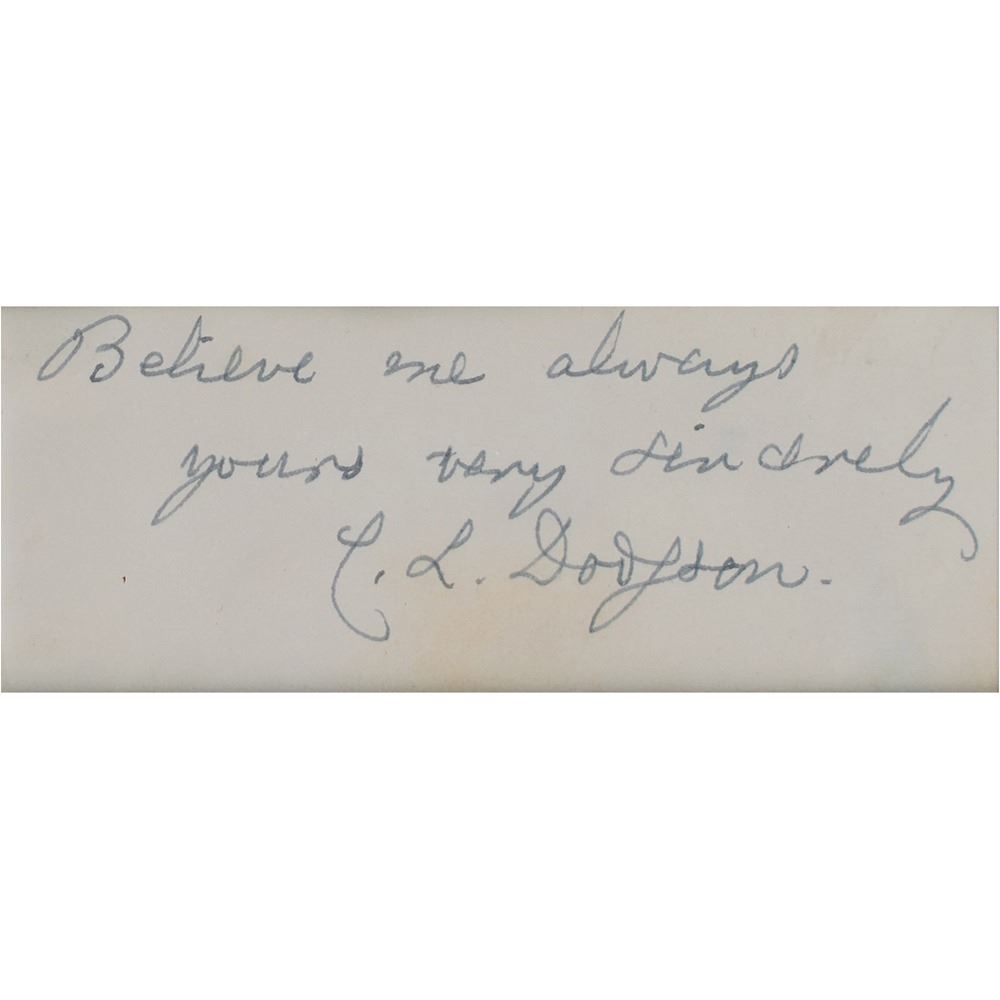 Believe me always
yours very sincerely
C. L. Dodgson.